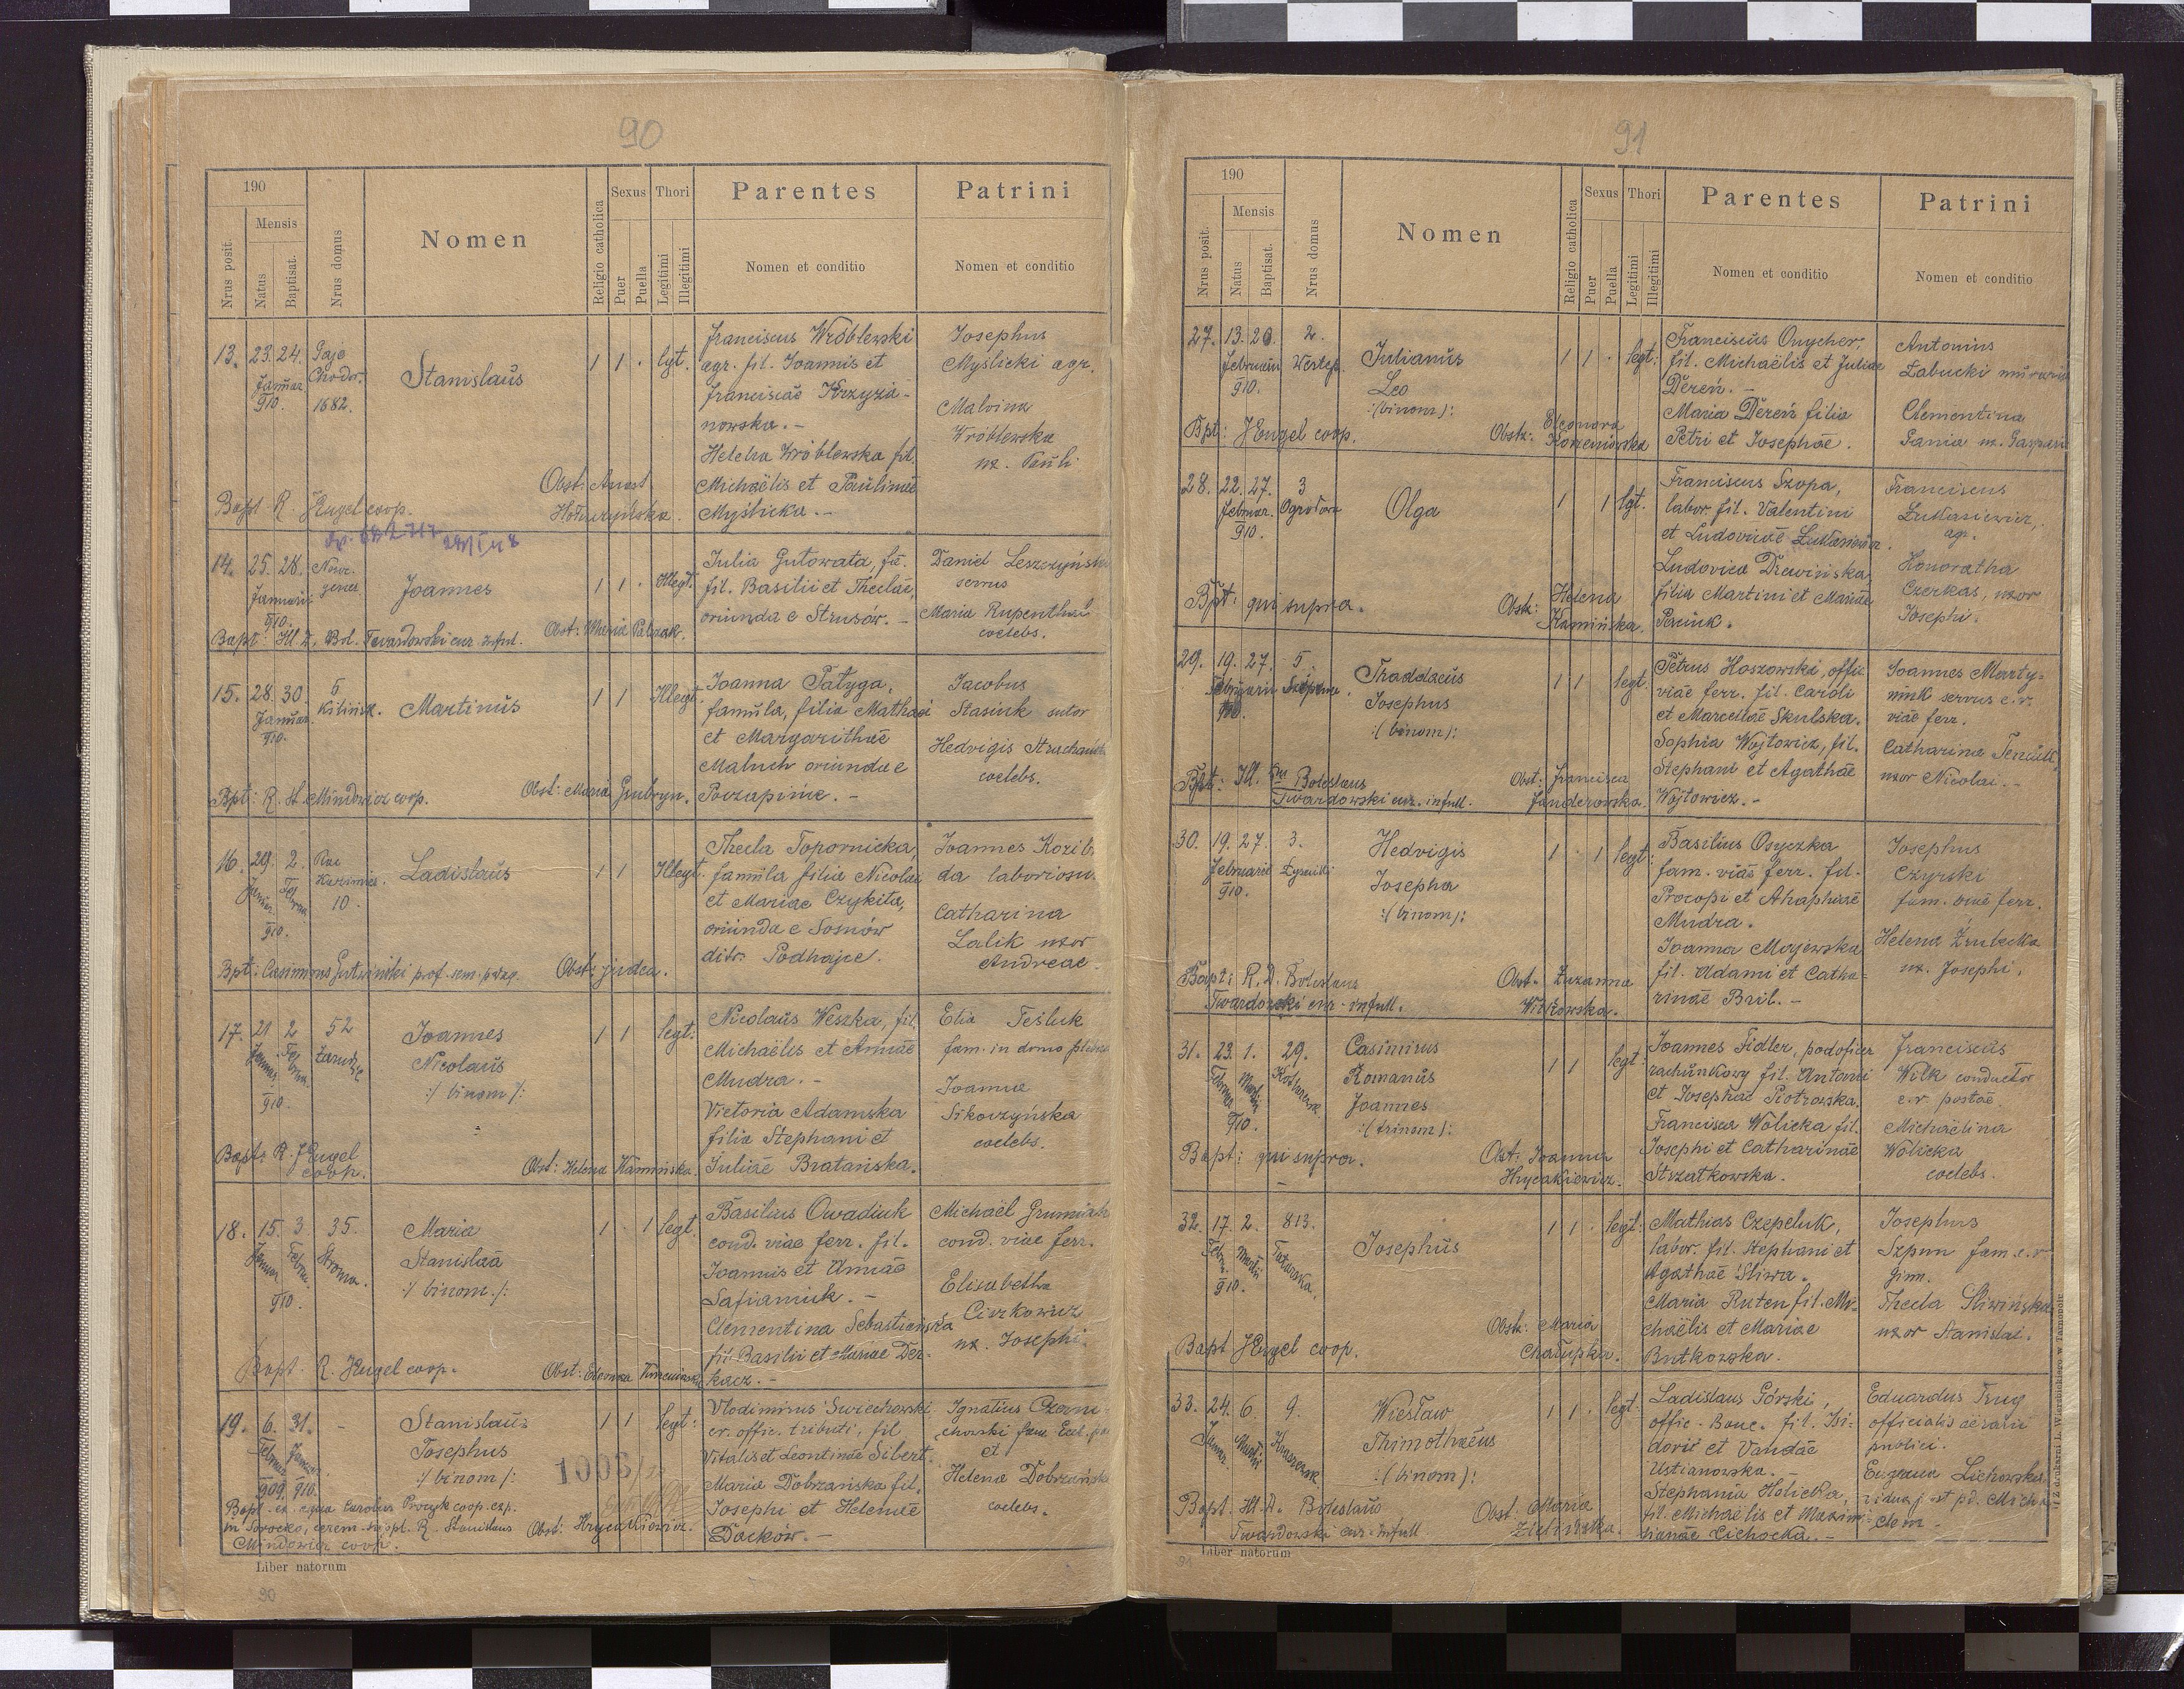 90
190
Nrus posit.
Mensis
Natus
Baptisat.
Nrus domus
Nomen
Religio catholica
Sexus
Puer
Puella
Thori
Legitimi
Illegitimi
Parentes
Nomen et conditio
Patrini
Nomen et conditio
13. 23. 24. Gaje
Januar. Chodor.
910. 1682.
Stanislaus
1 1 . lgt.
Franciscus Wróblewski
agr. fil. Joannis et
Franciscae Krzyża-
nowska. -
Helena Wróblewska fil.
Michaëlis et Paulinae
Myślicka. -
Josephus
Myślicki agr.
Malvina
Wróblewska
ux. Pauli
Obst: Anast
Hołuczyńska.
Bapt. R. JEngel coop.
14. 25. 28.
Januarii
910.
Joannes
1 1 . Illegt.
Julia Gutowata, fa.
fil. Basilii et Theclae,
oriunda e Strusów. -
Daniel Leszczyński
servus
Maria Rupenthal
coelebs.
Bapt: Ill. D. Bol. Twardowski cur. inful.
Obst: Maria Palczak.
15. 28. 30. 5
Januar. Kilińsk.
910.
Martinus
1 1 Illegt.
Joanna Patyga,
famula, filia Mathaei
et Margarithae
Maluch oriunda e
Poczapińce. -
Jacobus
Stasiuk sutor
Hedvigis
coelebs.
Bpt: R. St. Mindowicz coop.
Obst: Maria Gmbryn.
16. 29. 2.
Januar. Febru.
10.
910.
Ladislaus
1 1 Illegt.
Thecla Topornicka,
famula filia Nicolai
et Mariae Czykita,
oriunda e Sosnów
distr. Podhajce.
Joannes Kozib
da laboriosu.
Catharina
Lalik uxor
Andreae.
Bpt: Casimirus Gutwiński prof. sem.
Obst: judea.
17. 21 2 52
Januar. Febru. Zarudzie
910.
Joannes
Nicolaus
:/ binom /:
1 1 legt.
Nicolaus Weszka, fil.
Michaëlis et Annae
Mudra. -
Victoria Adamska
filia Stephani et
Juliae Bratańska.
Elia Teśluk
fam. in domo
Joanna
Sikorzyńska
coelebs.
Bapt: R. JEngel
coop.
Obst: Helena Kamińska.
18. 15. 3 35.
Januar Febru. Stroma.
910.
Maria
Stanislaa
:/ binom./:
1 . 1 legt.
Basilius Owadiuk
cond. viae ferr. fil.
Joannis et Annae
Safianiuk. -
Clementina Sebastiańska
fil. Basilii et Mariae Der-
kacz. -
Michaël
cond. viae ferr.
Elisabetha
Ciczkowicz
ux. Josephi.
Bapt. R. JEngel coop.
Obst: Eleonora Korzeniowska
19. 6. 31. -
Februar Januar.
909. 910.
Stanislaus
Josephus
:/ binom /:
1 1 legt:
Vlodimirus Swiechowski
cr. offic. tributi, fil
Vitalis et Leontinae Sibert.
Maria Dobrzańska fil.
Josephi et Helenae
Daćków. -
Ignatius
et
Helena Dobrzańska
coelebs.
1006
Bapt. ex aqua Carolus Procyk coop. exp.
in Toroczko, cerem. suppl. R. Stanislaus
Mindowicz coop.
Obst: Hrycakiewicz.
Liber natorum
90
91
190
Nrus posit.
Mensis
Natus
Baptisat.
Nrus domus
Nomen
Religio catholica
Sexus
Puer
Puella
Thori
Legitimi
Illegitimi
Parentes
Nomen et conditio
Patrini
Nomen et conditio
27. 13. 20. 2.
Februarii Westep.
910.
Julianus
Leo
:(binom):
1 1 . legt:
Franciscus Onycher,
fil. Michaëlis et Juliae
Dereń. -
Maria Dereń filia
Petri et Josephae.
Antonius
Labucki murarius
Clementina
Pania ux. Gaspari
Bpt: JEngel coop.
Obstr: Eleonora
Korzeniowska
28. 22. 27. 3
Februar. Ogrodowa
910.
Olga
1 1 lgt.
Franciscus Szopa,
labor. fil. Valentini
et Ludovicae Łukasiewicz.
Ludovica Drewińska
filia Martini et Mariae
Peniuk.
Franciscus
Łukasiewicz,
agr.
Honoratha
Czerkas, uxor
Josephi.
Bpt: qui supra.
Obstr: Helena
Kamińska.
29. 19. 27. 5.
Februarii Szopena.
910.
Thaddaeus
Josephus
:( binom):
1 1 legt.
Petrus Koszowski, offic.
viae ferr. fil. Caroli
et Marcellae Skulska.
Sophia Wojtowicz, fil.
Stephani et Agathae
Wojtowicz. -
Joannes Marty-
niuk servus c.r.
viae ferr.
Catharina
uxor Nicolai. -
Bpt: Ill. Boleslaus
Twardowski cur. infull.
Obst: Francisca
Janderowska.
30. 19. 27. 3.
Februarii
910.
Hedvigis
Josepha
:( binom):
1 . 1 legt:
Basilius Osyczka
fam. viae ferr. fil.
Procopi et Ahaphiae
Mudra.
Joanna Majewska
fil. Adami et Catha-
rinae Bril. -
Josephus
Czyrski
fam. viae ferr.
Helena
ux. Josephi.
Bapt: R. D. Boleslaus
Twardowski cur. infull.
Obst. Zuzanna
Witkowska.
31. 23. 1. 29.
Februar Martii
910.
Casimirus
Romanus
Joannes
:(trinom):
1 1 legt:
Joannes Fidler, podoficer
rachunkowy fil. Antoni
et Josephae Piotrowska.
Francisca Wolicka fil.
Josephi et Catharinae
Strzatkowska.
Franciscus
Wilk conductor
c.r. postae
Michaëlina
Wolicka
coelebs.
Bapt: qui supra.
Obst. Joanna
Hrycakiewicz.
32. 17. 2. 813.
Febr. Martii Tatarska,
910.
Josephus
1 1 . legt:
Mathias Czepeluk,
labor. fil. Stephani et
Agathae Śliwa.
Maria Ruten fil. Mi-
chaëlis et Mariae
Butkowska.
Josephus
Szpun fam. c.r.
gimn.
Thecla Śliwińska
uxor Stanislai.
Bapt JEngel coop.
Obstr: Maria
Chałupka.
33. 24. 6. 9.
Januar. Martii
Wiesław
Thimothaeus
:(binom):
1 1 . legt.
Ladislaus Górski,
offic. Banc. fil. Isi-
dori et Vandae
Ustianowska. -
Stephania Holicka,
fil. Michaëlis et Maximi-
lianae Cichocka. -
Eduardus Trug
officialis aerarii
publici.
Eugenia Lichowska
vidua post
Bapt. Ill. D. Boleslaus
Twardowski cur. infull
Obst. Maria
Zielińska.
Liber natorum
Z drukarni L. Wierzbickiego w Tarnopolu